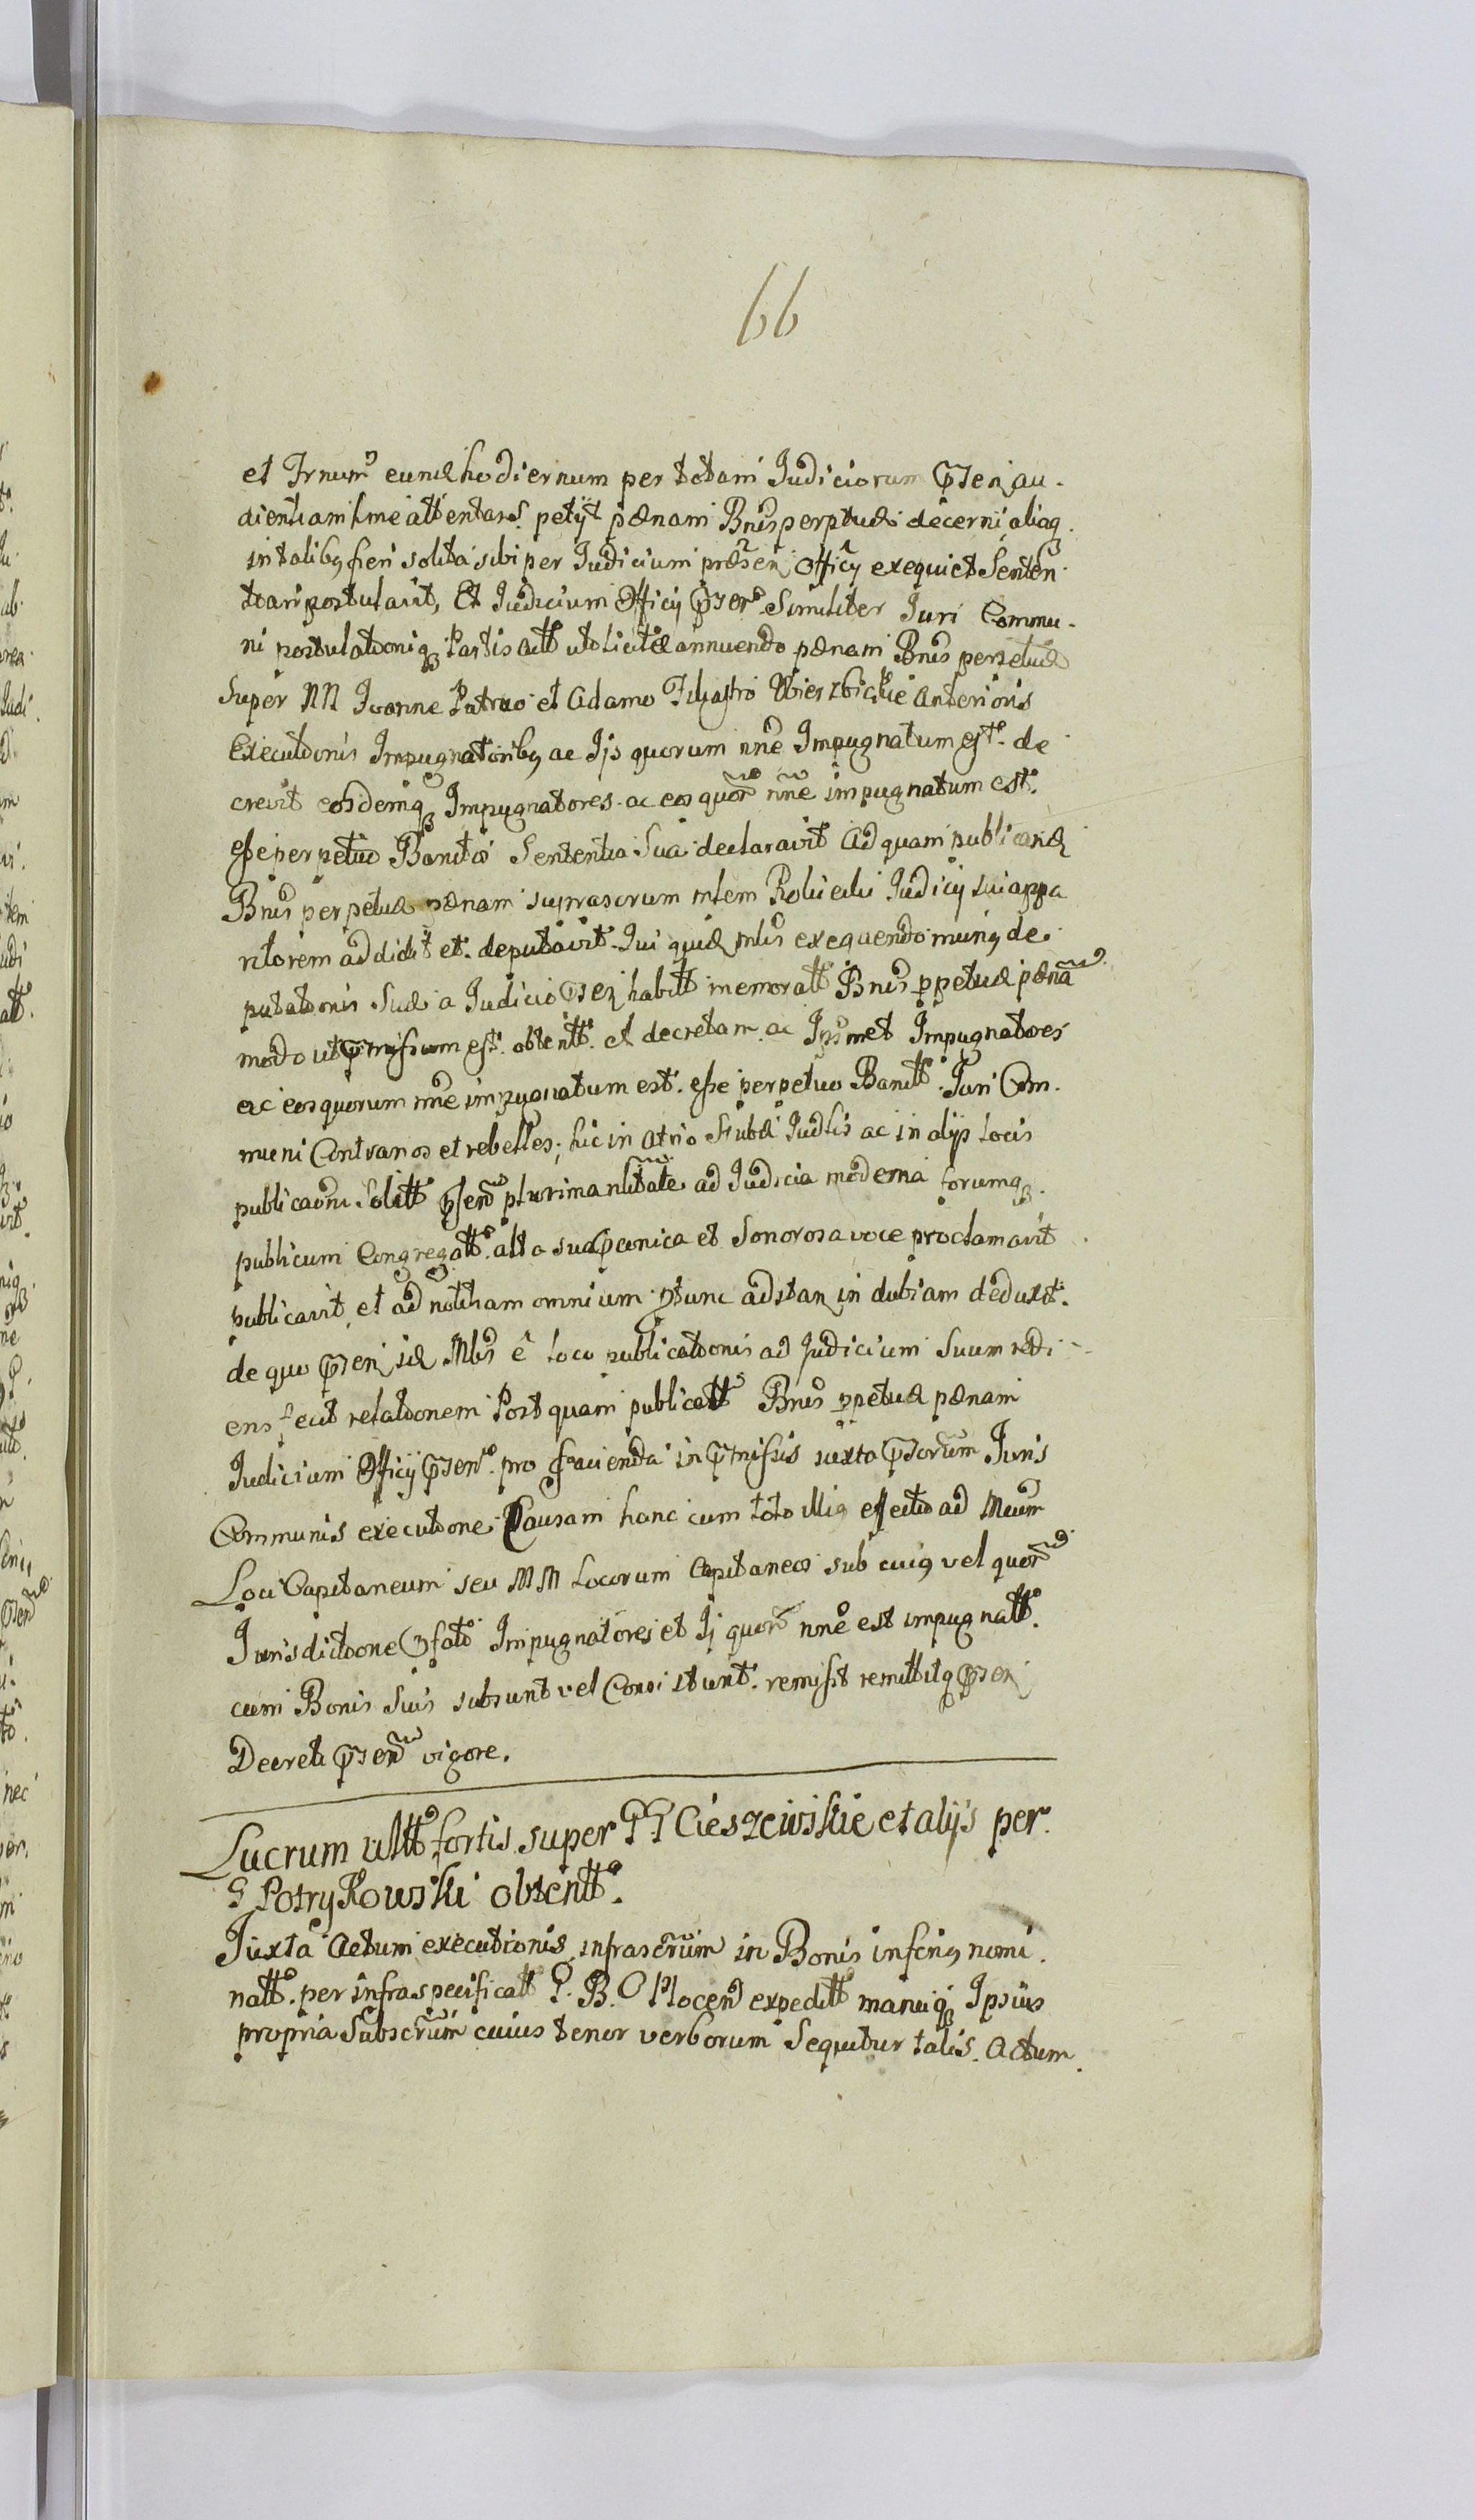 66
et Trnum eund hodiernum per totam Judiciorum pnsen au-
dientiam hme attentans petijt pænam Bnis perptuæ decerni aliaq
in talibq fieri solita sibi per Judicium præsen Officij exequi et Senten
tiari postulavit, Et Judicium Officij pnsens Similiter Juri Commu-
ni postulationiq Partis Actt uto licitæ annuendo pænam Bnis perpetuæ
Super NN Joanne Patruo et Adamo Filiastro Wierzbickie Anterioris
Executionis Impugnatoribq ac Ijs quorum nne Impugnatum est. de
crevit eosdemq Impugnatores ac eos quor nne impugnatum est.
esse perpetuo Banitos Sententia Sua declaravit Ad quam publicand
Bnis perpetuæ pænam suprascrum mlem Judicij sui appa
ritorem addidit et deputavit. Qui quid mlis exequendo munq de-
putationis Suæ a Judicio pnsen habitt memoratt Bnis ppetuæ pæna
modo ut pmissum est. obtentt. et decretam ac Ipsimet Impugnatores
ac eos quorum nne impugnatum est. esse perpetuo Banitt. Juri Com-
muni Contrarios et rebelles, hic in atrio Stubæ Judlis ac in alijs locis
publicaoni Solitt psen plurima nlitate ad Judicia moderna forumq
publicum Congregatt. alta sua pconica et Sonorosa voce proclamavit
publicavit, et ad notitiam omnium ptunc adstan in dubiam deduxit.
de quo psen id Mlis è loco publicationis ad Judicium Suum redi-
ens fecit relationem Post quam publicatt Bnis ppetuæ pænam
Judicium Officij pnsens. pro facienda in pmissis iuxta psorum Juris
Communis executione Causam hanc cum toto illiq effectu ad Mcum
Loci Capitaneum seu MM Locorum Capitaneos sub cuiq vel quor
Jurisdictione pfato Impugnatores et Ij quor nne est impugnatt.
cum Bonis Suis subsunt vel Consistunt. remisit remittitq psen
Decreti psen vigore.
Lucrum ultt fortis super GG Cieszewskie et alijs per
G Potrykowski obtentt.
Juxta Actum executionis infrascrum in Bonis inferiq nomi
natt. per infraspecificatt G. B. C Plocen expeditt manuiq Ipsius
propria Subscrum cuius tenor verborum Sequitur talis. Actum